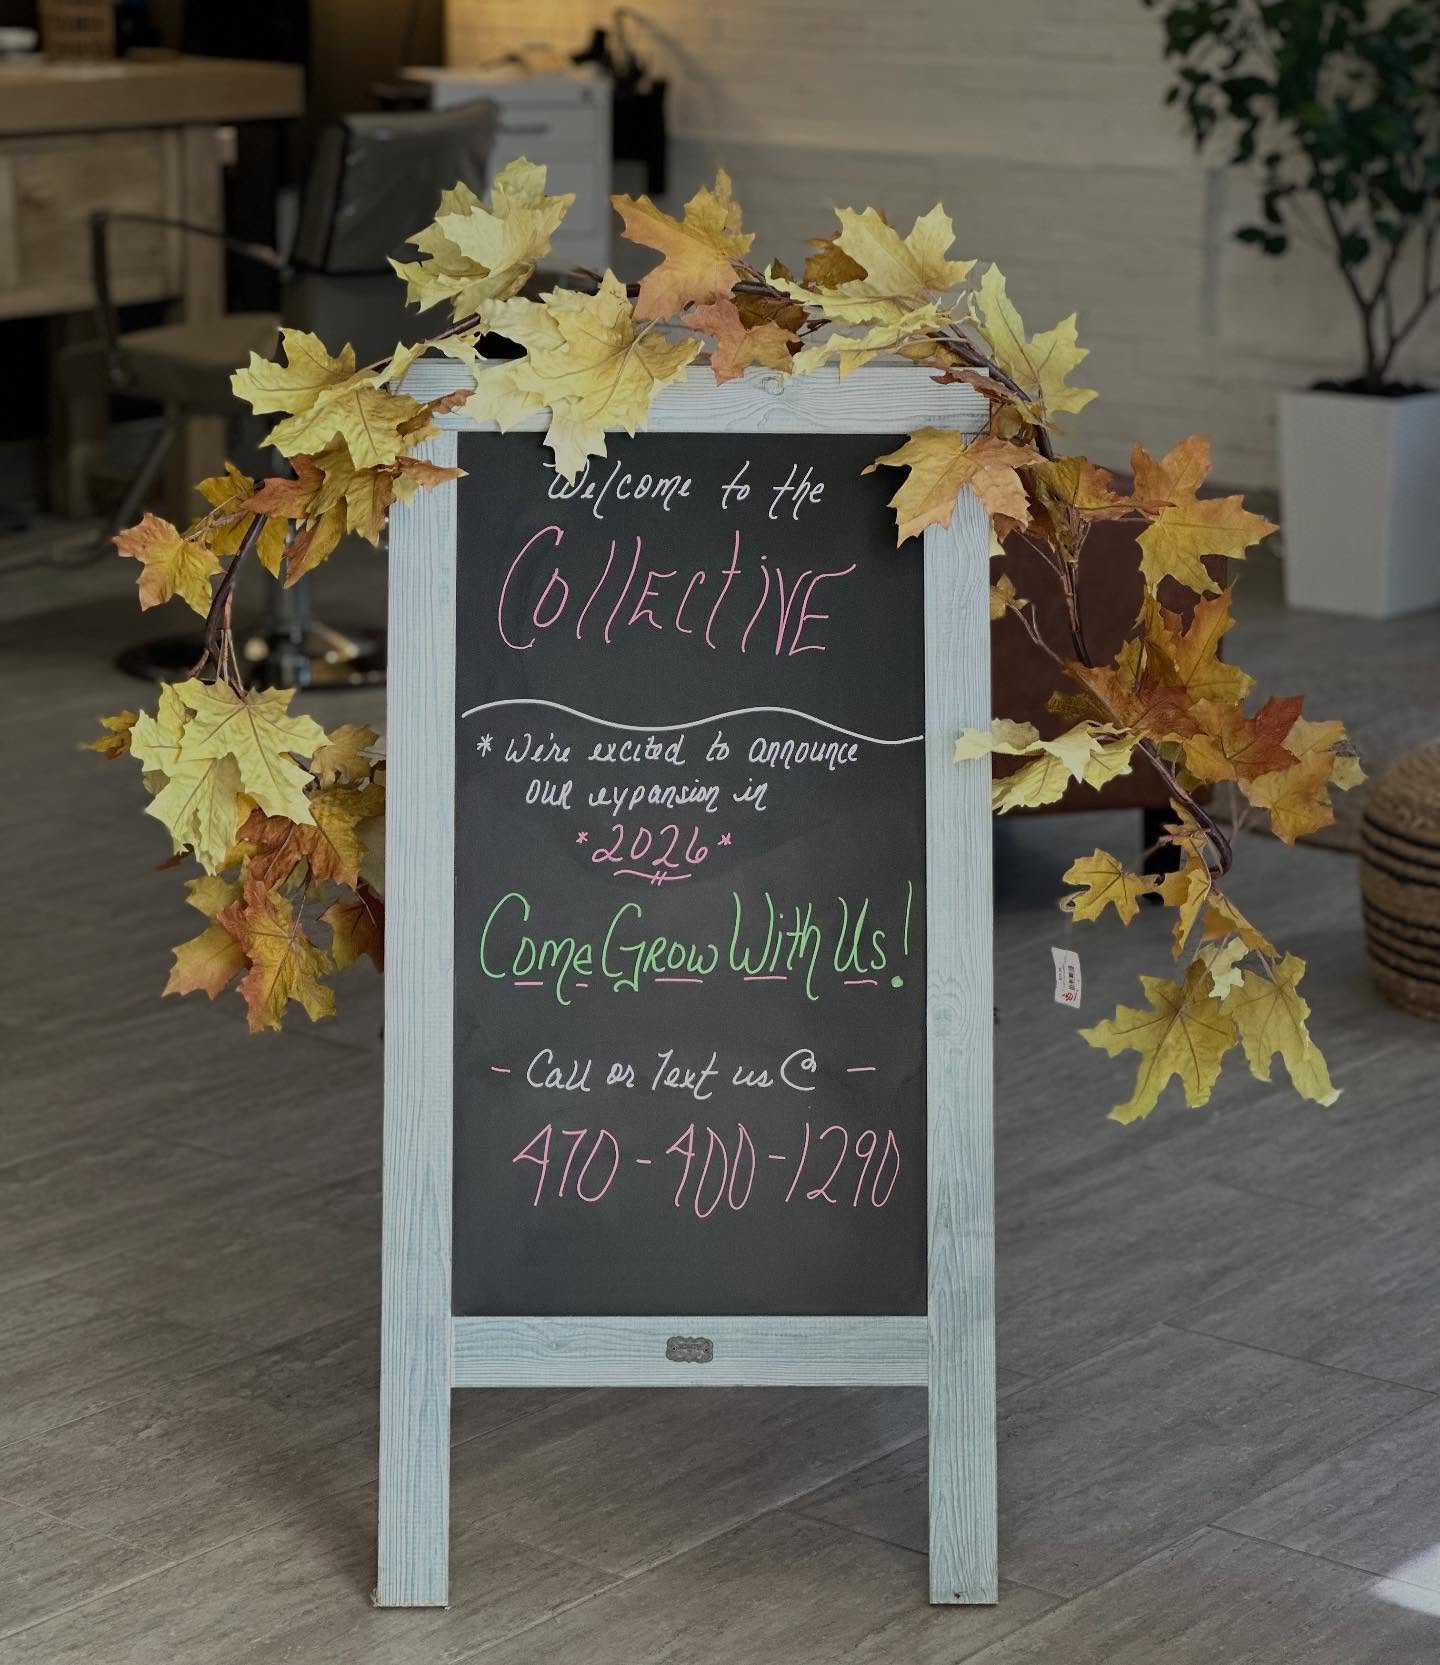 Welcome to the
Collective
* We're excited to announce
our expansion in
*2026*
Come Grow With Us!
- Call or Text us @ -
470-400-1290